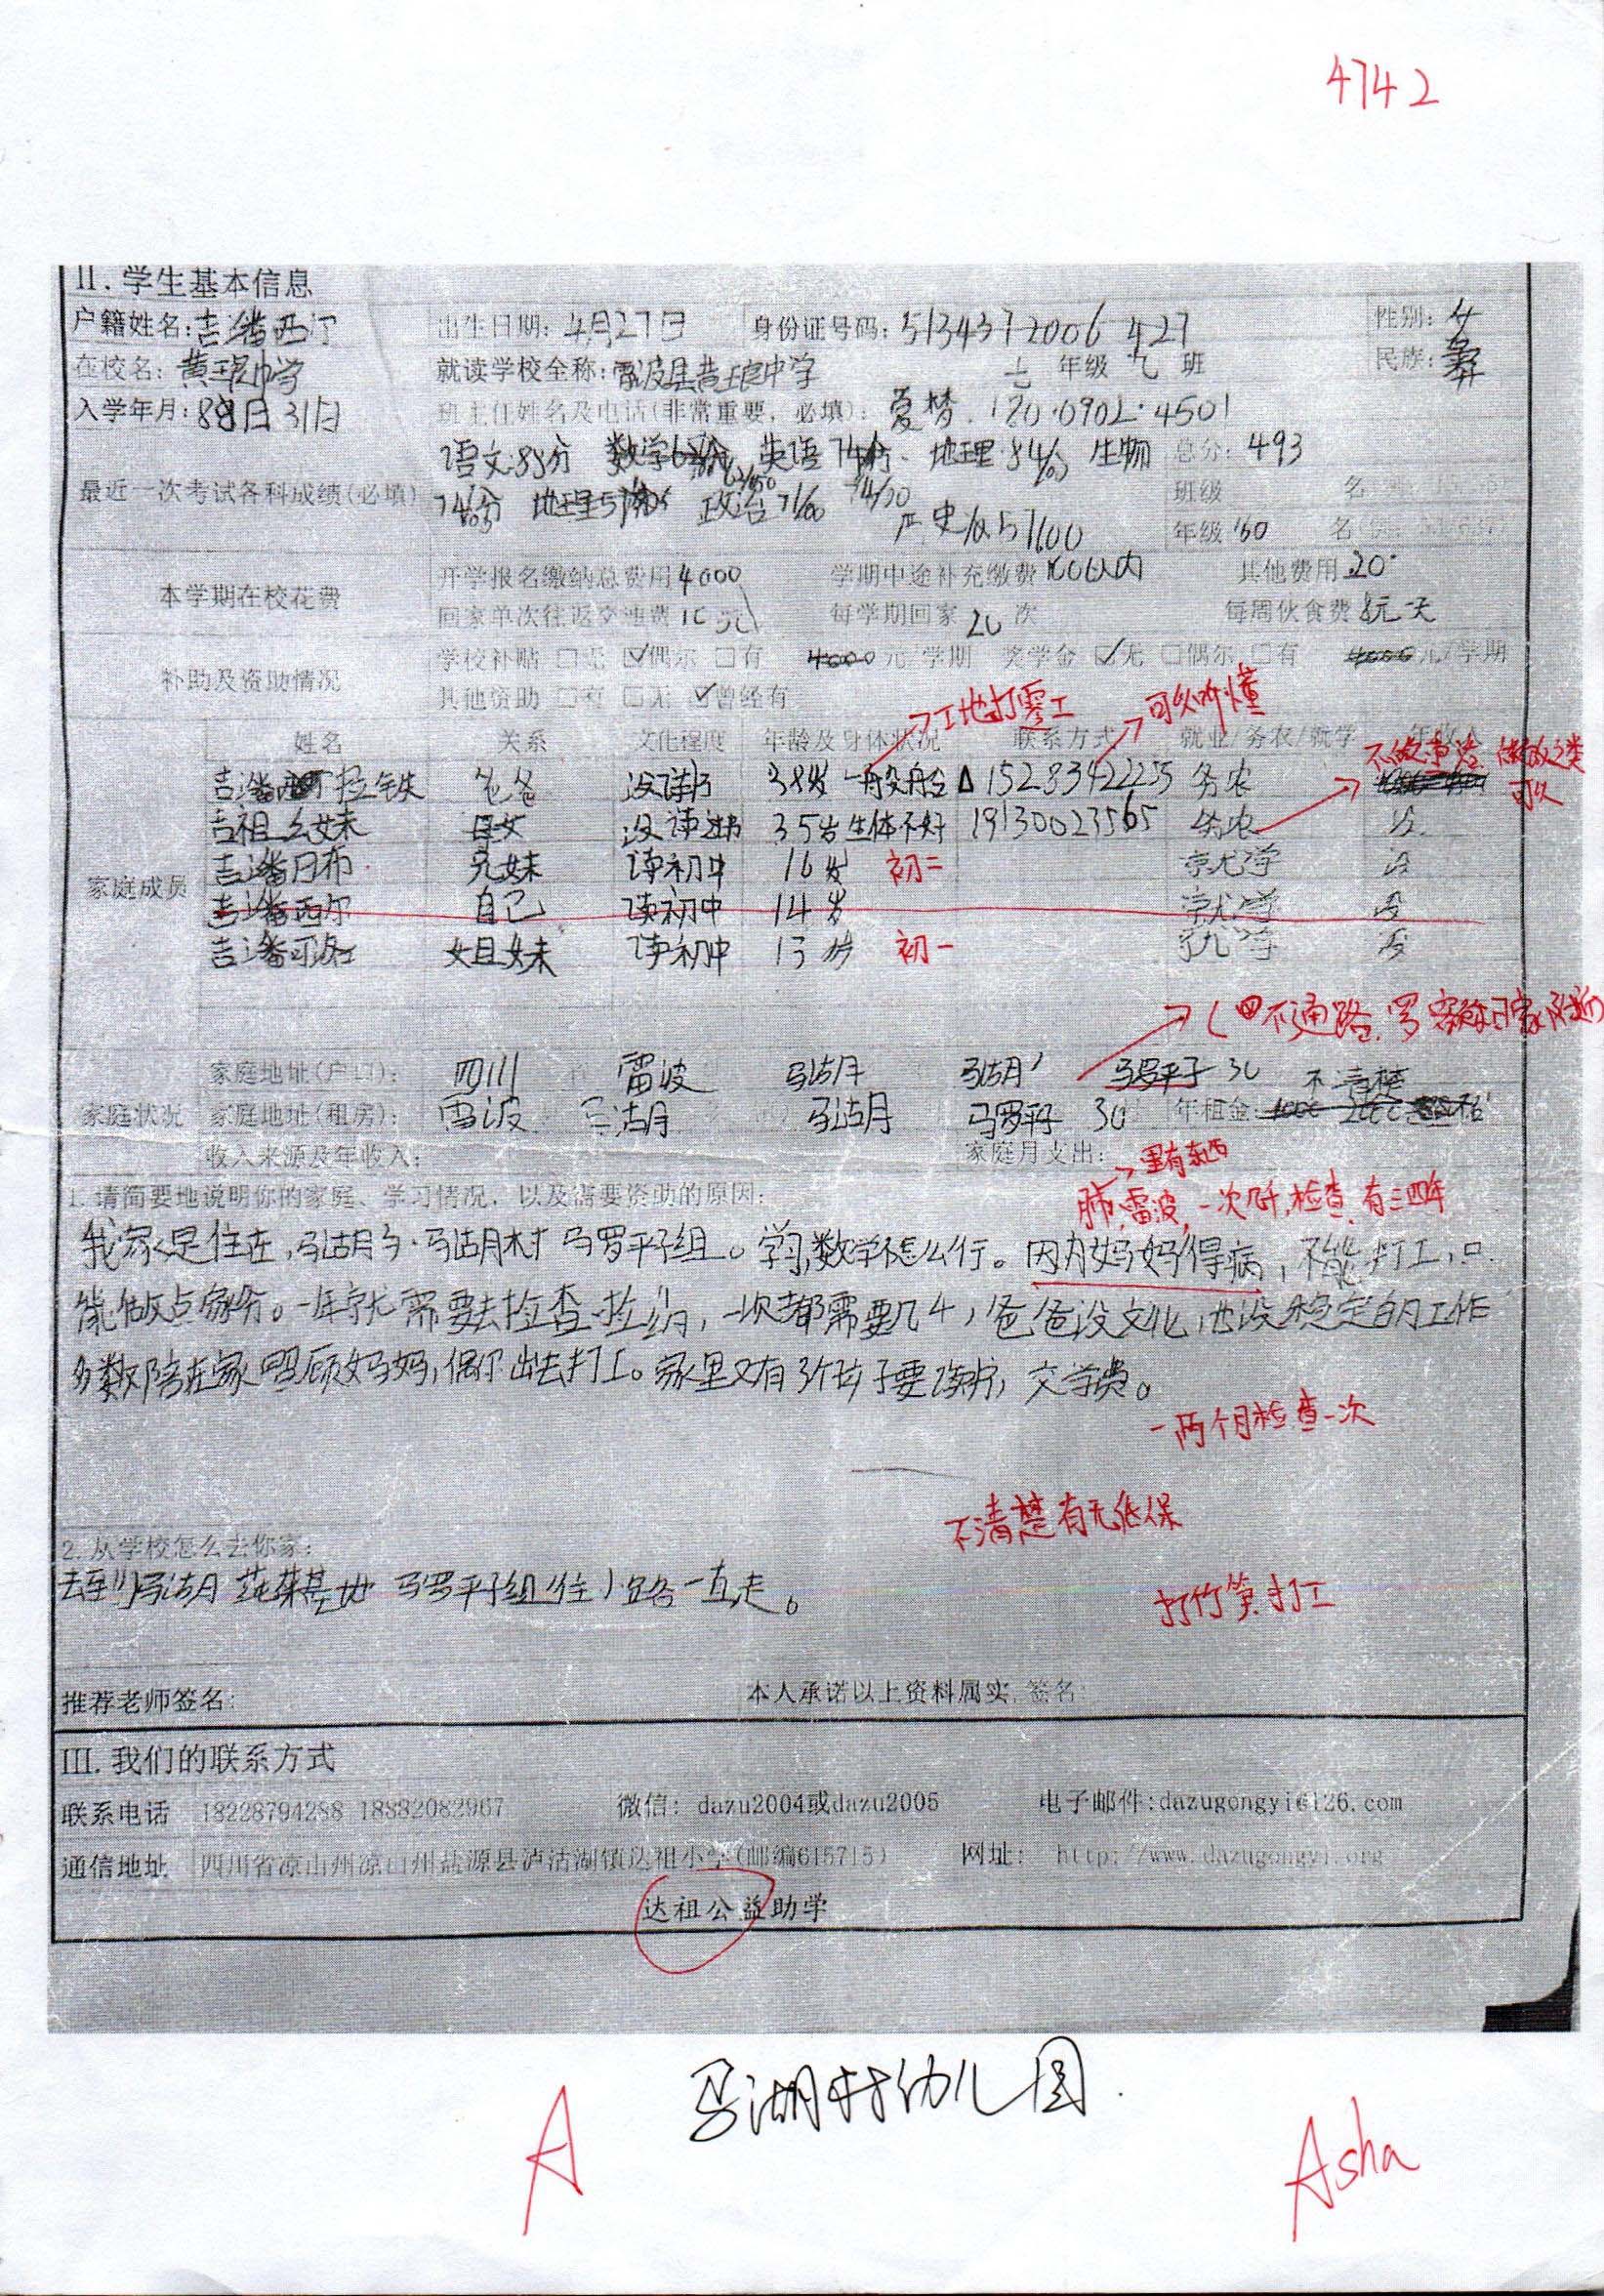 4742
II.学生基本信息
户籍姓名:吉潘西 出生日期: 4月27日 身份证号码: 513437 2006 427 性别: 女
在校名: 黄琅中学 就读学校全称: 雷波县黄琅中学 七 年级 七 班 民族: 彝
入学年月: 8月31日 班主任姓名及电话(非常重要, 必填): 爱梦. 180.0902.4501
语文:88分 英语74分. 地理 84分 生物 总分: 493
最近一次考试各科成绩(必填) 74分 政治71/100 74/100 班级 名
历史 年级 名
本学期在校花费 开学报名缴纳总费用 4000 学期中途补充缴费 100以内 其他费用 20
回家单次往返交通费 10元 每学期回家 20 次 每周伙食费 8元一天
补助及资助情况 学校补贴 □无 ☑偶尔 □有 4000 元/学期 奖学金 ☑无 □偶尔 □有 4000 元/学期
其他资助 □有 □无 ☑曾经有
→工地打零工 可以听懂
姓名 关系 文化程度 年龄及身体状况 联系方式 就业/务农/就学 年收入
吉潘 拉铁 爸爸 没读书 38岁 一般 △ 15283422255 务农
吉祖么妹 母女 没读过书 35岁生体不好 19130023565 务农 没
家庭成员 吉潘日布 兄妹 读初中 16岁 初二 就学 没
吉潘西尔 自己 读初中 14岁 就学 没
吉潘 姐妹 读初中 13岁 初一 就学 没
不通路.
家庭地址(户口): 四川 雷波 马湖 马湖 马罗平子 30 不清楚
家庭状况 家庭地址(租房): 雷波 马湖 马湖 马罗平子 30 年租金:
收入来源及年收入: 家庭月支出:
→里有东西
肺,雷波,一次几千,检查.有三四年
1.请简要地说明你的家庭、学习情况，以及需要资助的原因:
我家是住在,马湖乡.马湖村马罗平子组。学习,数学不怎么行。因为妈妈得病,不能打工,只
能做点家务。一年就需要去检查 ,一次都需要几千,爸爸没文化,也没稳定的工作
多数陪在家照顾妈妈,偶尔出去打工。家里又有3个孩子要读书,交学费。
一两个月检查一次
不清楚有无低保
2.从学校怎么去你家:
去到马湖 基地 马罗平子组往 路一直走。
打竹笋,打工
推荐老师签名: 本人承诺以上资料属实, 签名:
III.我们的联系方式
联系电话 18228794288 18882082967 微信: dazu2004或dazu2005 电子邮件:dazugongyi@126.com
通信地址 四川省凉山州凉山州盐源县泸沽湖镇达祖小学(邮编615715) 网址: http://www.dazugongyi.org
达祖公益助学
马湖村幼儿园.
A Asha